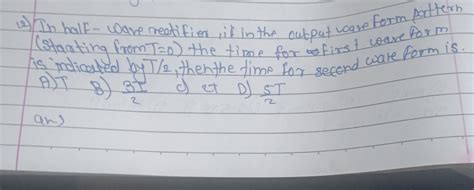 12) In half-wave rectifier, if in the output wave form pattern
(starting from T=0) the time for first wave form
is indicated by T/2, then the time for second wave form is.
A) T B) 3T/2 c) 2T D) 5T/2
ans